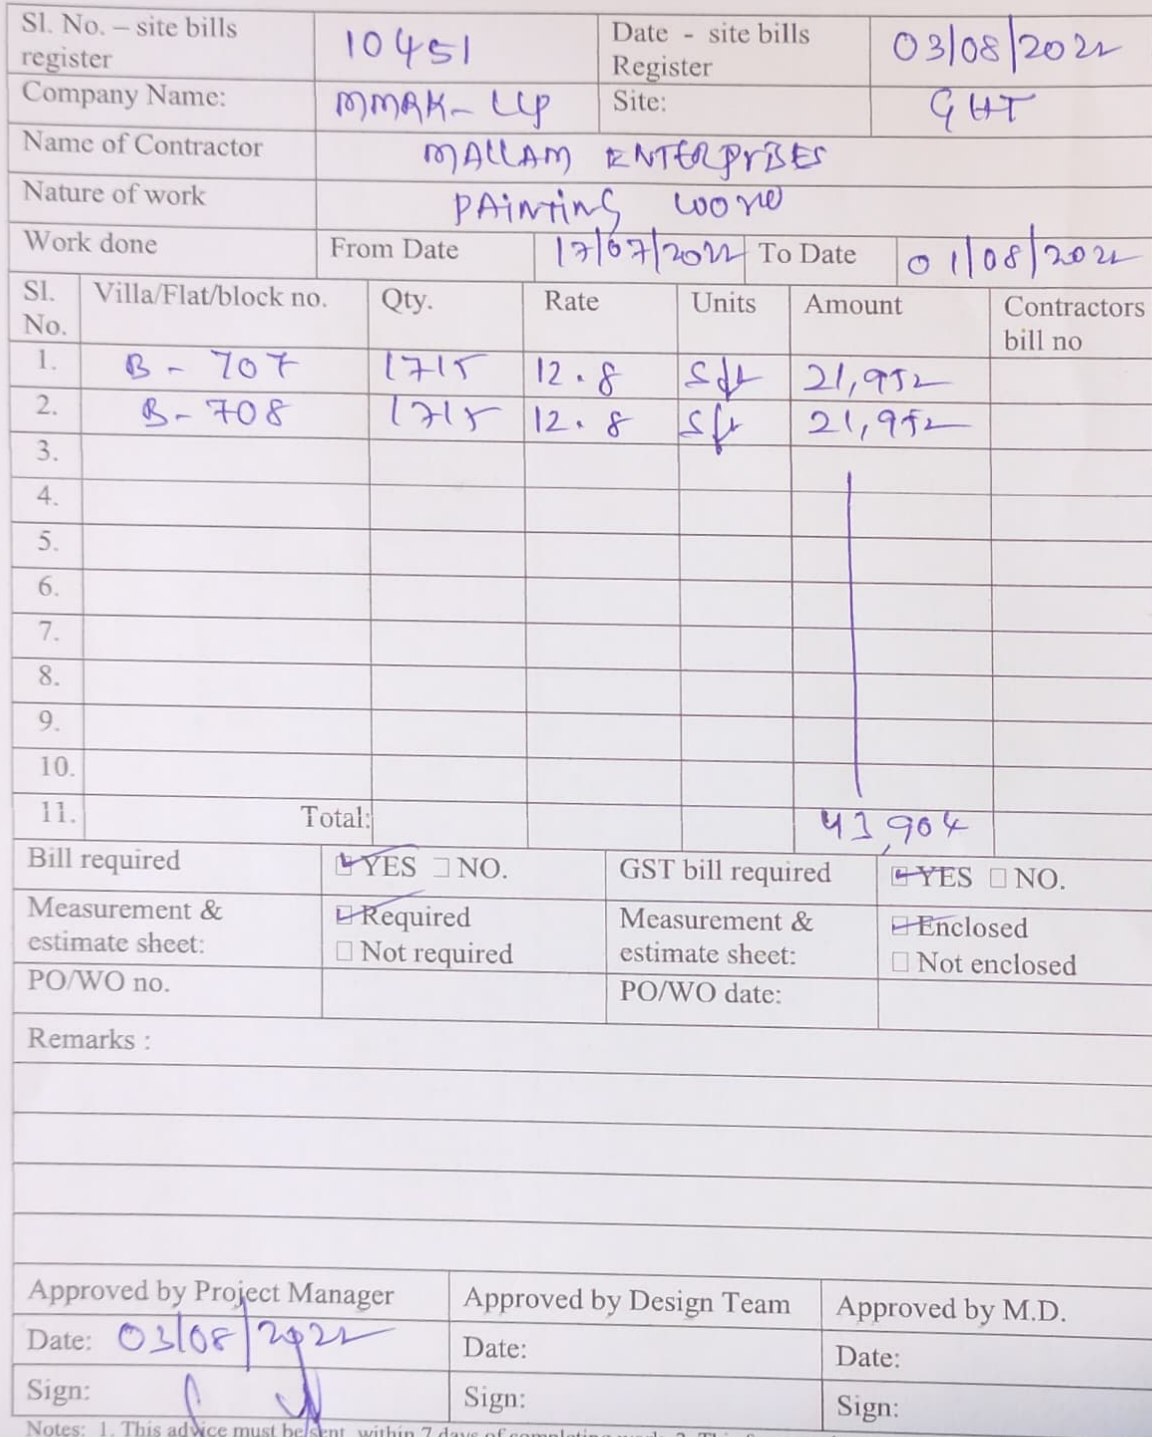 Sl. No. – site bills register 10451 Date - site bills Register 03/08/2022
Company Name: MMRK-LLP Site: GHT
Name of Contractor MALLAM ENTERPRISES
Nature of work PAINTING WORK
Work done From Date 17/07/2022 To Date 01/08/2022
Sl. No. Villa/Flat/block no. Qty. Rate Units Amount Contractors bill no
1. B - 707 1715 12.8 Sft 21,952
2. B-708 1715 12.8 Sft 21,952
3.
4.
5.
6.
7.
8.
9.
10.
11. Total: 43,904
Bill required ☑ YES ☐ NO. GST bill required ☑ YES ☐ NO.
Measurement & estimate sheet: ☑ Required ☐ Not required Measurement & estimate sheet: ☑ Enclosed ☐ Not enclosed
PO/WO no. PO/WO date:
Remarks :
Approved by Project Manager Approved by Design Team Approved by M.D.
Date: 03/08/2022 Date: Date:
Sign: Sign: Sign:
Notes: 1. This advice must be sent within 7 days of